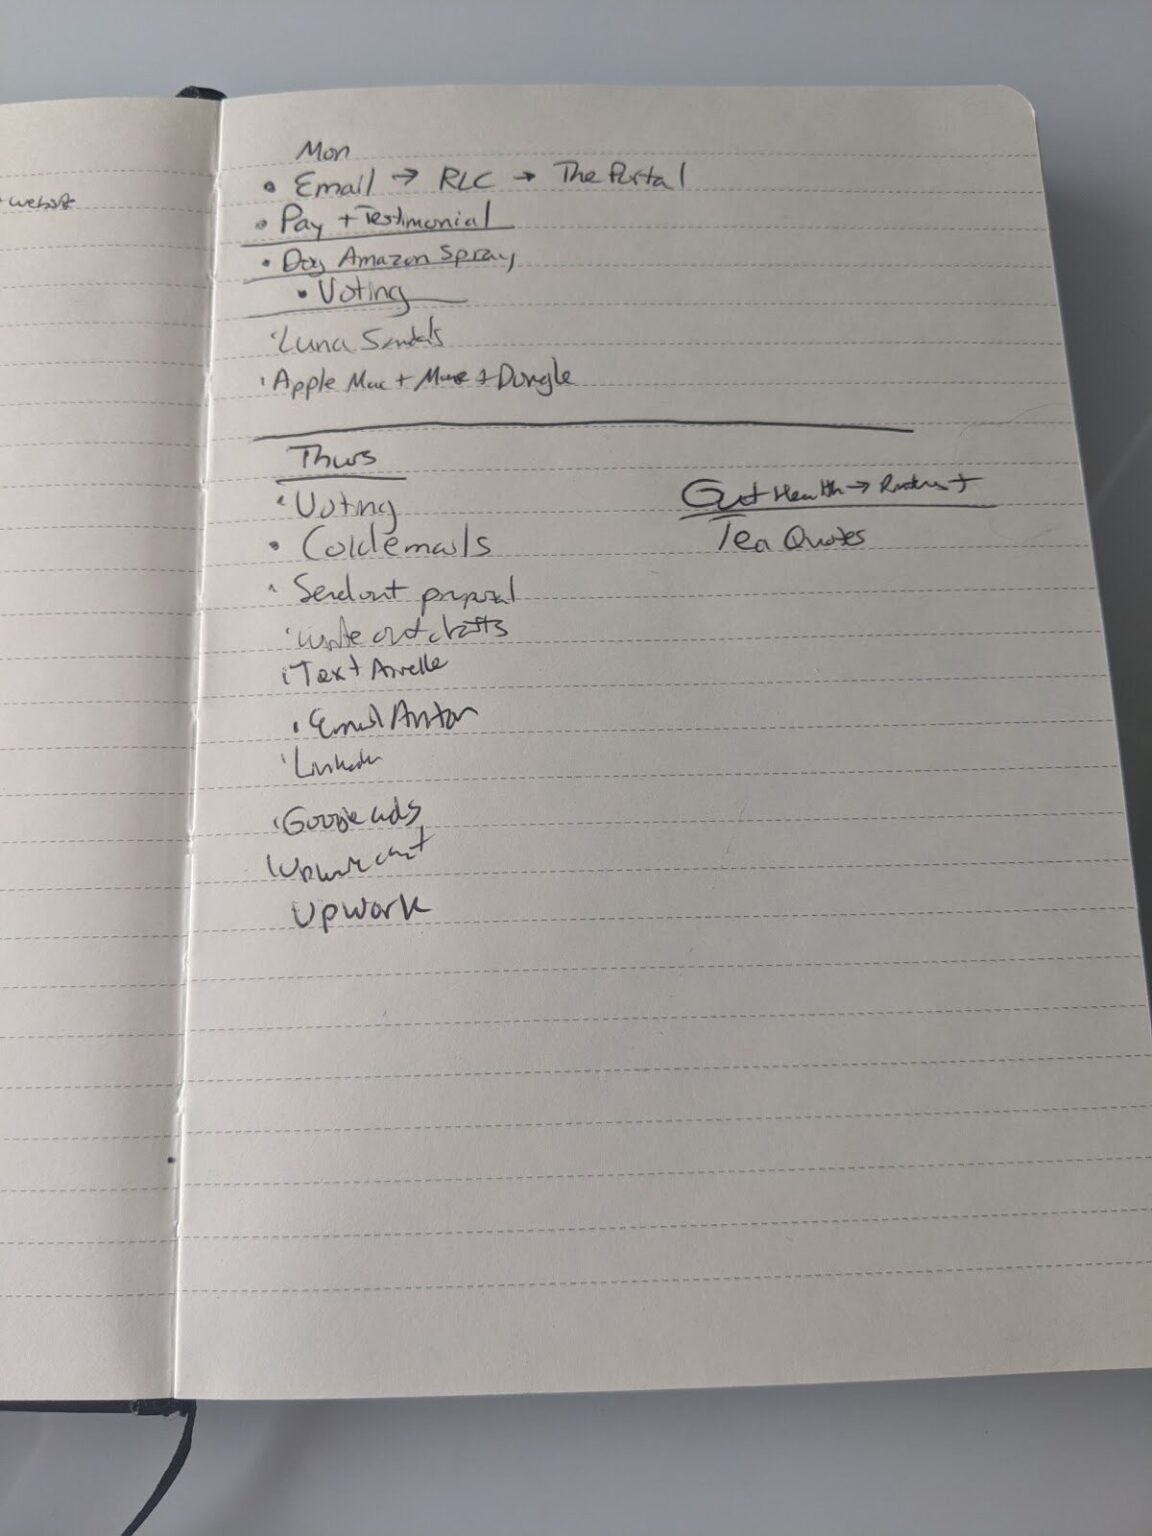 website
Mon
• Email → RLC → The Portal
• Pay + Testimonial
• Dog Amazon Spray
• Voting
• Luna Sandals
• Apple Mac + Mouse + Dongle
Thurs
• Voting
• Cold emails
• Send out proposal
• write out drafts
• Text Arielle
• Email Anton
• Linkedin
• Google ads
Upwork
Gut Health →
Tea Quotes